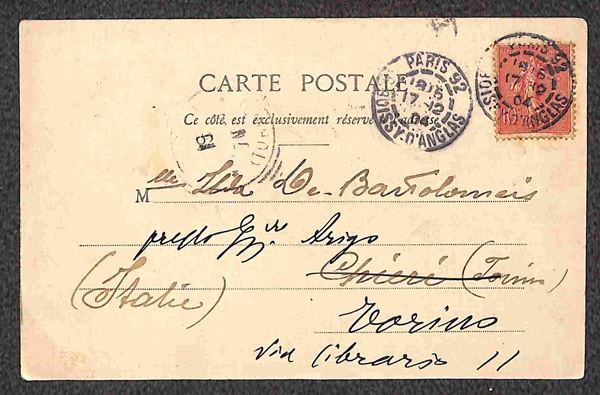 CARTE POSTALE
Ce côté est exclusivement réservé à l'adresse
PARIS 92
BOISSY-D'ANGLAS
PARIS 92
BOISSY D'ANGLAS
Mlle Lila De-Bartolomeis
presso Arrigo
Chieri (Torino)
(Italie)
Torino
Via Cibrario 11